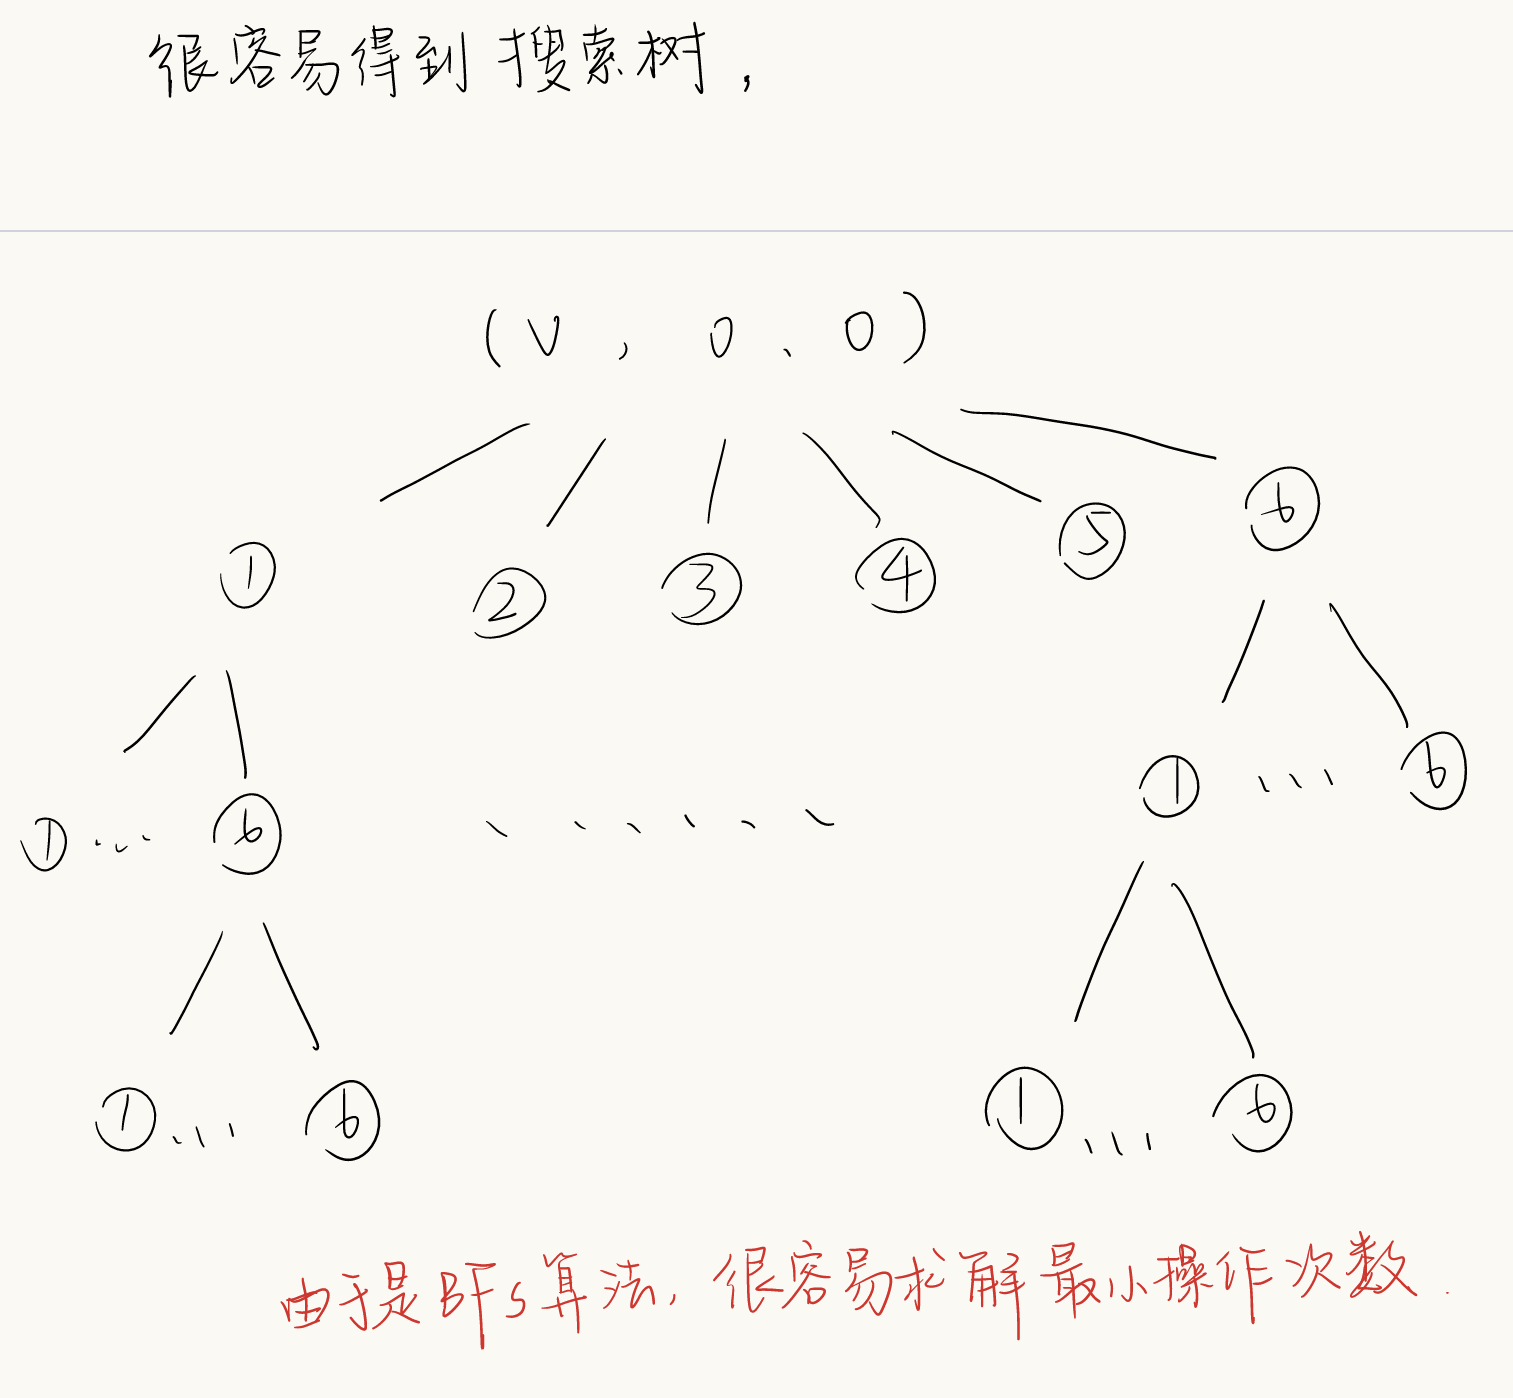 很容易得到搜索树,
(V, 0、0)
① ② ③ ④ ⑤ ⑥
①... ⑥ ....... ①...⑥
①... ⑥ ①... ⑥
由于是BFS算法,很容易求解最小操作次数.